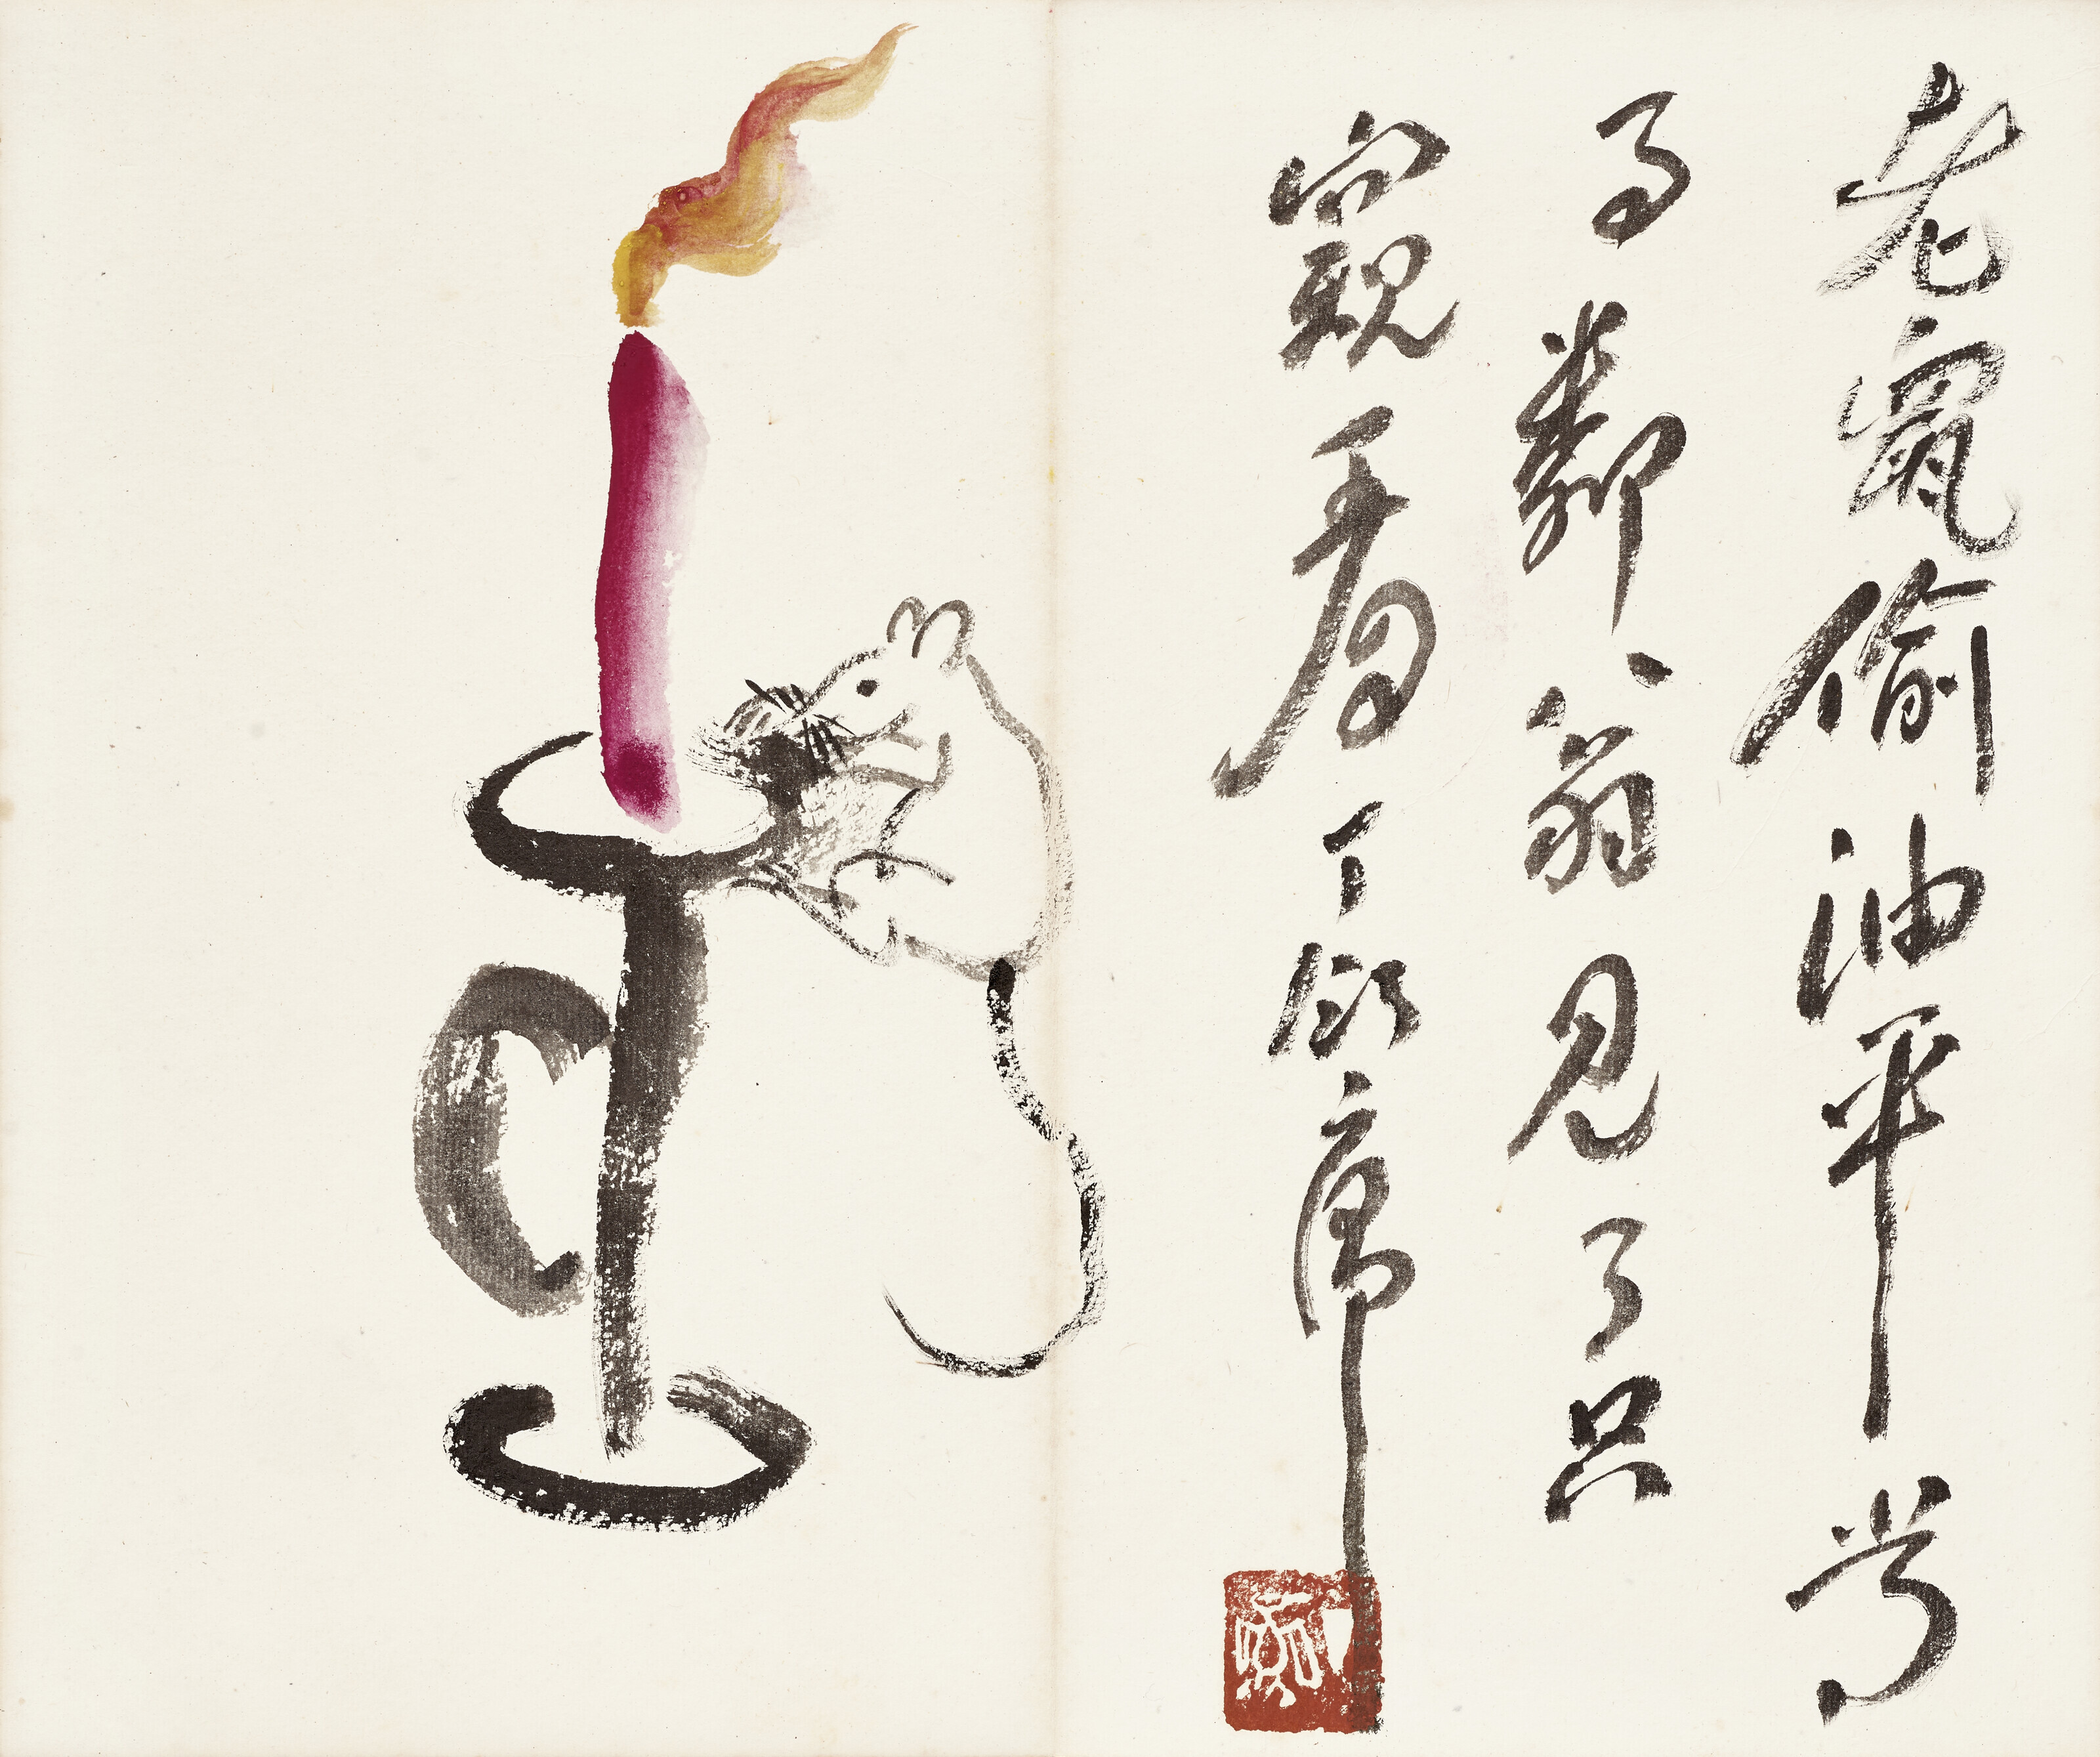 老鼠偷油平常
事鄰翁見了只
窺看丁衍庸